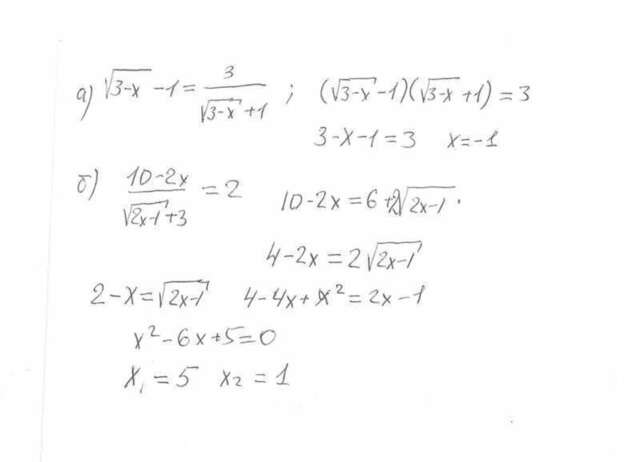 а) √(3-x) -1 = 3/(√(3-x) +1) ; (√(3-x) -1)(√(3-x) +1) = 3
3-x-1=3 x=-1
б) (10-2x)/(√(2x-1) +3) = 2 10-2x = 6+2√(2x-1) .
4-2x = 2√(2x-1)
2-x=√(2x-1) 4-4x+x²=2x-1
x²-6x+5=0
x₁ = 5 x₂ = 1